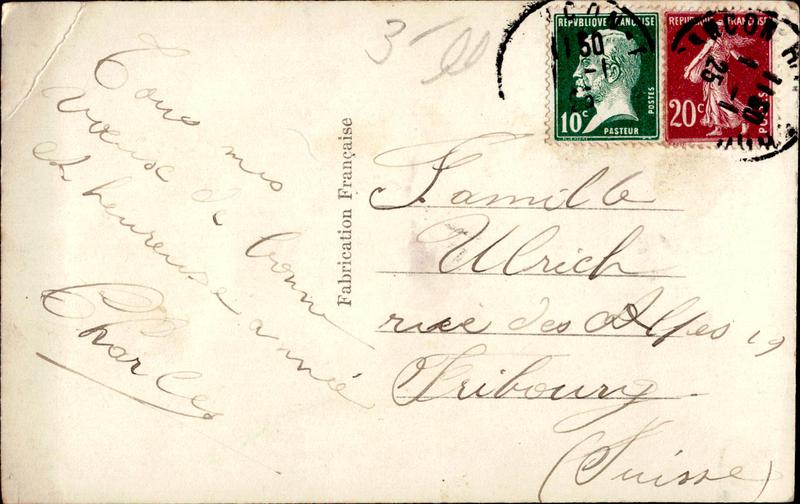 3
REPVBLIQVE FRANÇAISE
10c
POSTES
PASTEUR
REPUBLIQUE FRANÇAISE
20c
POSTES
11 30
1 -1
25
Tous mes
vœux de bonne
et heureuse année
Charles
Fabrication Française
Famille
Ulrich
rue des Alpes 19
Fribourg
(Suisse)